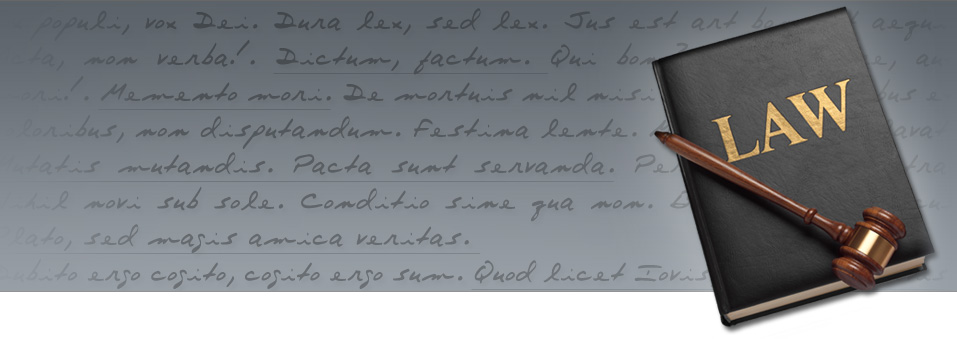 populi, vox Dei. Dura lex, sed lex. Jus est art bo t aequ
ta, non verba!. Dictum, factum. Qui bon e, au
ori!. Memento mori. De mortuis nil nisi bus e
loribus, non disputandum. Festina lente. ava
utatis mutandis. Pacta sunt servanda. Pe tra
hil novi sub sole. Conditio sine qua non. D
Plato, sed magis amica veritas.
Dubito ergo cogito, cogito ergo sum. Quod licet Iovis
LAW